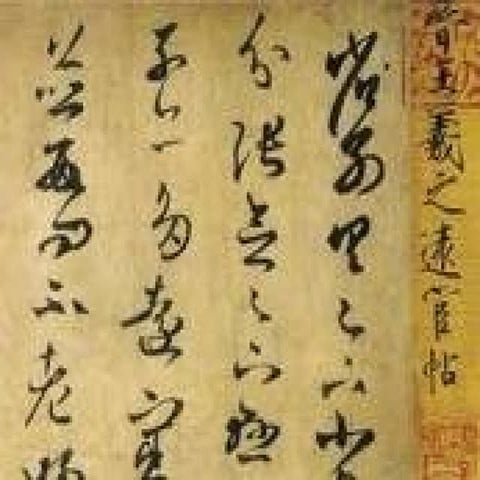 晉王羲之遠宦帖
省別具足下小
分張念足下懸
子亦多遠宦
數問不老婦